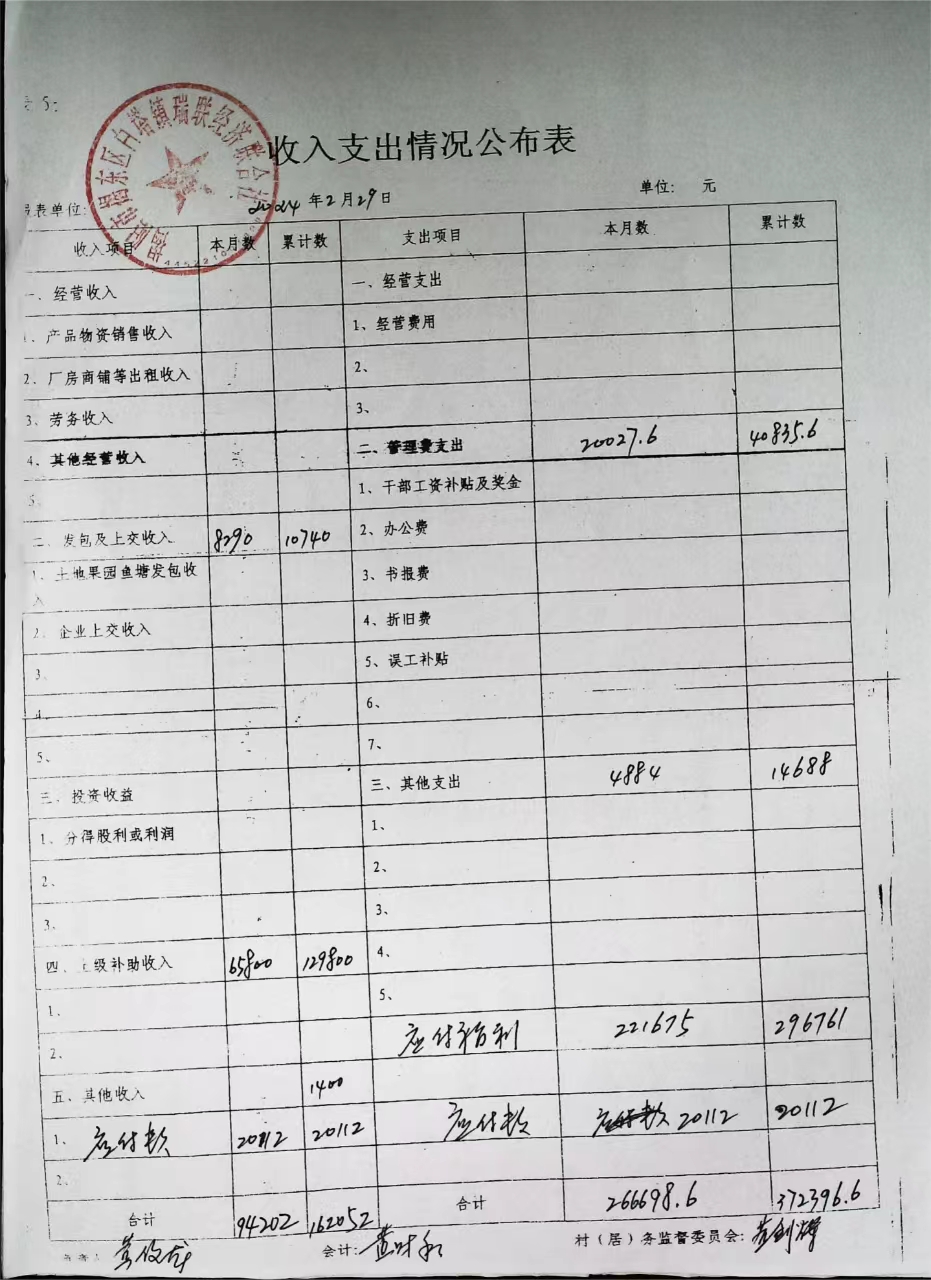 表5:
揭阳市揭东区白塔镇瑞联经济联合社
收入支出情况公布表
报表单位: 2024年2月29日 单位: 元
收入项目 本月数 累计数 支出项目 本月数 累计数
一、经营收入 一、经营支出
1、产品物资销售收入 1、经营费用
2、厂房商铺等出租收入 2、
3、劳务收入 3、
4、其他经营收入 二、管理费支出 20027.6 40835.6
5、 1、干部工资补贴及奖金
二、发包及上交收入 8290 10740 2、办公费
1、土地果园鱼塘发包收入 3、书报费
2、企业上交收入 4、折旧费
3、 5、误工补贴
4、 6、
5、 7、
三、投资收益 三、其他支出 4884 14688
1、分得股利或利润 1、
2、 2、
3、 3、
四、上级补助收入 65800 129800 4、
1、 5、
2、 应付福利 221675 296761
五、其他收入 1400
1、应付款 20112 20112 应付款 20112 20112
2、
合计 94202 162052 合计 266698.6 372396.6
会计: 村（居）务监督委员会: